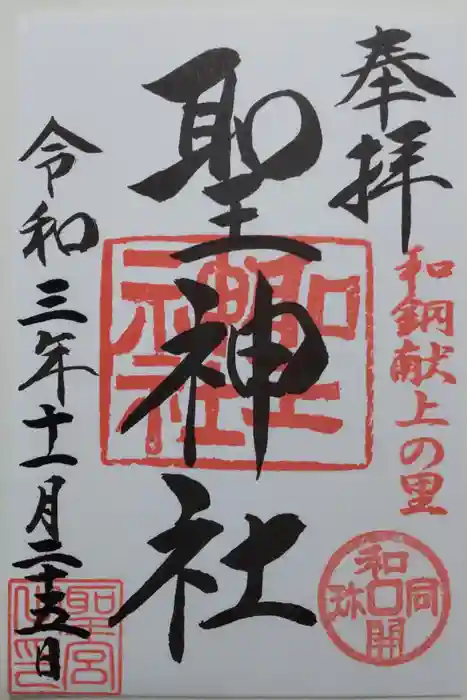 奉拝
和銅献上の里
和同開珎
聖神社
聖神社
令和三年十一月二十五日